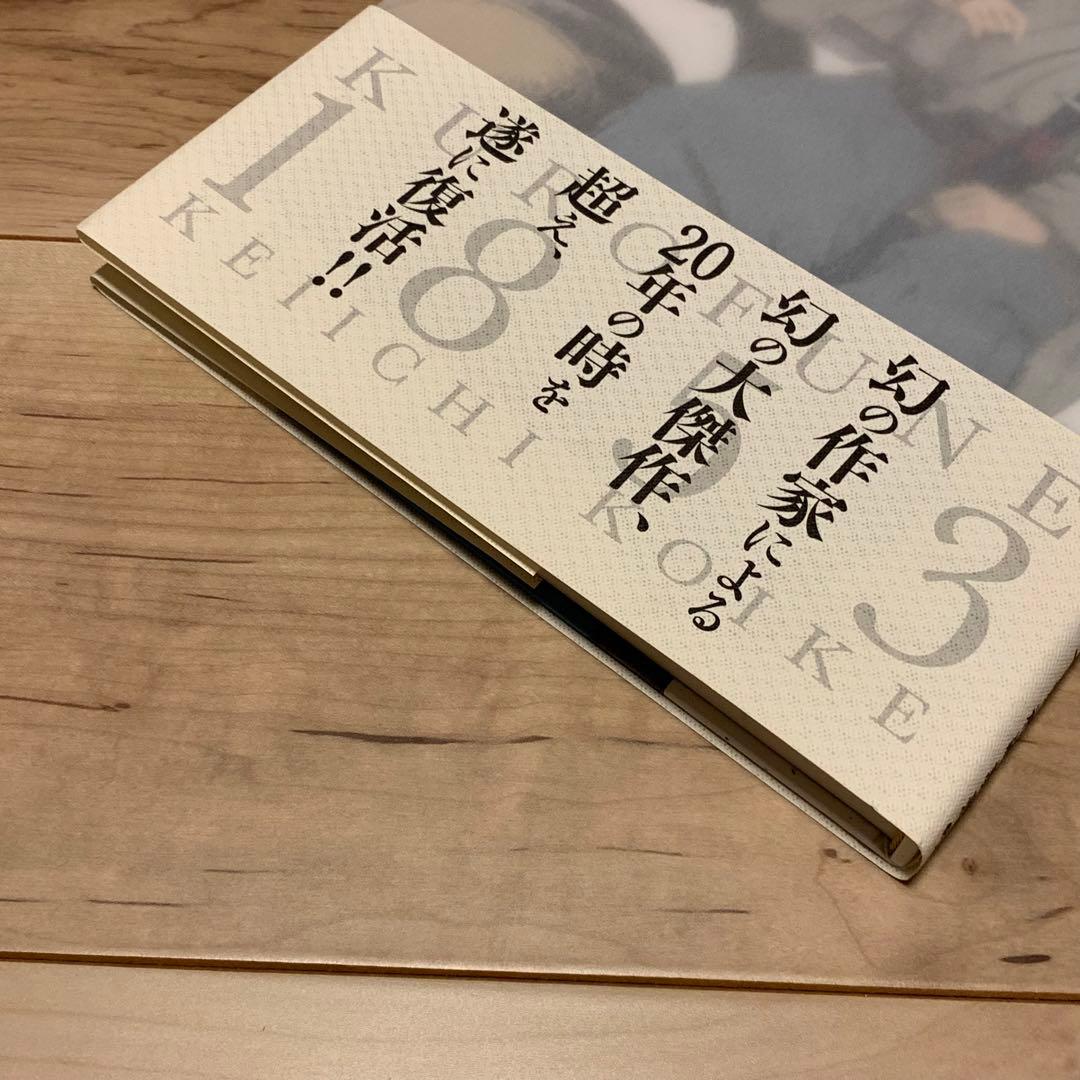 幻の作家による
幻の大傑作、
20年の時を
超え、
遂に復活!!
KUROFUNE
1853
KEIICHI KOIKE